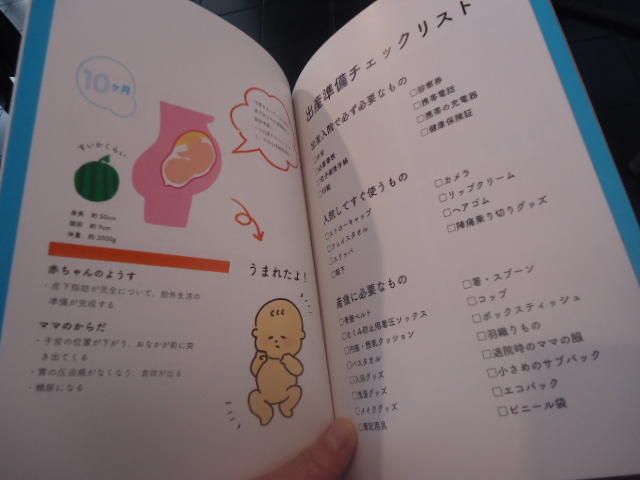 10ヶ月
すいかくらい
身長 約50cm
頭囲 約9cm
体重 約3000g
うまれたよ!
赤ちゃんのようす
・皮下脂肪が完全について、胎外生活の
準備が完成する
ママのからだ
・子宮の位置が下がり、おなかが前に突
き出てくる
・胃の圧迫感がなくなり、食欲が出る
・頻尿になる
出産準備チェックリスト
出産入院で必ず必要なもの
□母子健康手帳
□印鑑
□診察券
□携帯電話
□携帯の充電器
□健康保険証
入院してすぐ使うもの
□ストローキャップ
□フェイスタオル
□スリッパ
□靴下
□カメラ
□リップクリーム
□ヘアゴム
□陣痛乗り切りグッズ
産後に必要なもの
□骨盤ベルト
□むくみ防止用着圧ソックス
□円座・授乳クッション
□バスタオル
□入浴グッズ
□洗面グッズ
□メイクグッズ
□筆記用具
□箸・スプーン
□コップ
□ボックスティッシュ
□羽織りもの
□退院時のママの服
□小さめのサブバック
□エコバック
□ビニール袋